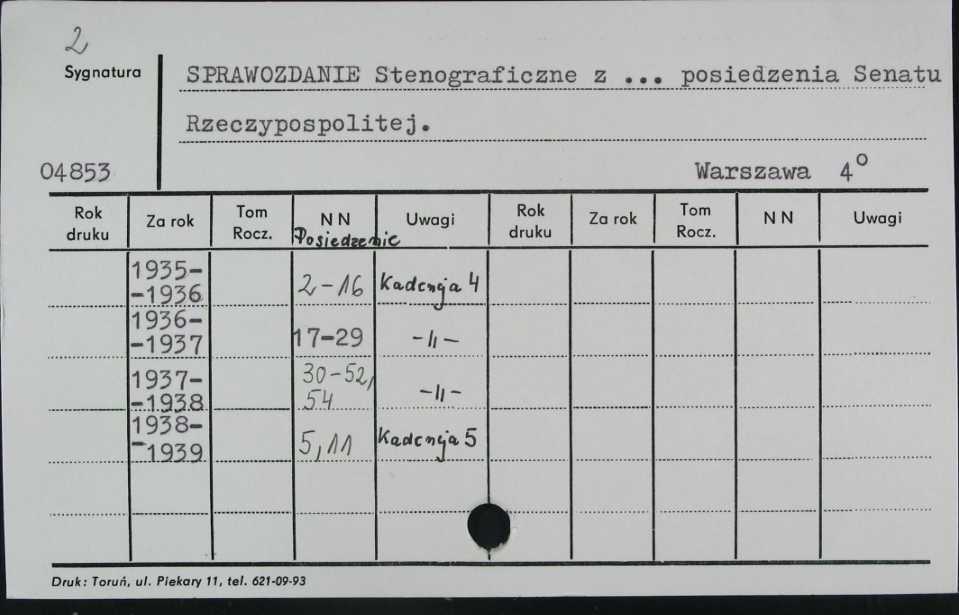 2
Sygnatura
SPRAWOZDANIE Stenograficzne z ... posiedzenia Senatu
Rzeczypospolitej.
04853
Warszawa 4°
Rok druku Za rok Tom Rocz. N N Uwagi Rok druku Za rok Tom Rocz. N N Uwagi
Posiedzenie
1935-
-1936 2-16 Kadencja 4
1936-
-1937 17-29 -||-
1937-
-1938 30-52, 54 -||-
1938-
-1939 5,11 Kadencja 5
Druk: Toruń, ul. Piekary 11, tel. 621-09-93